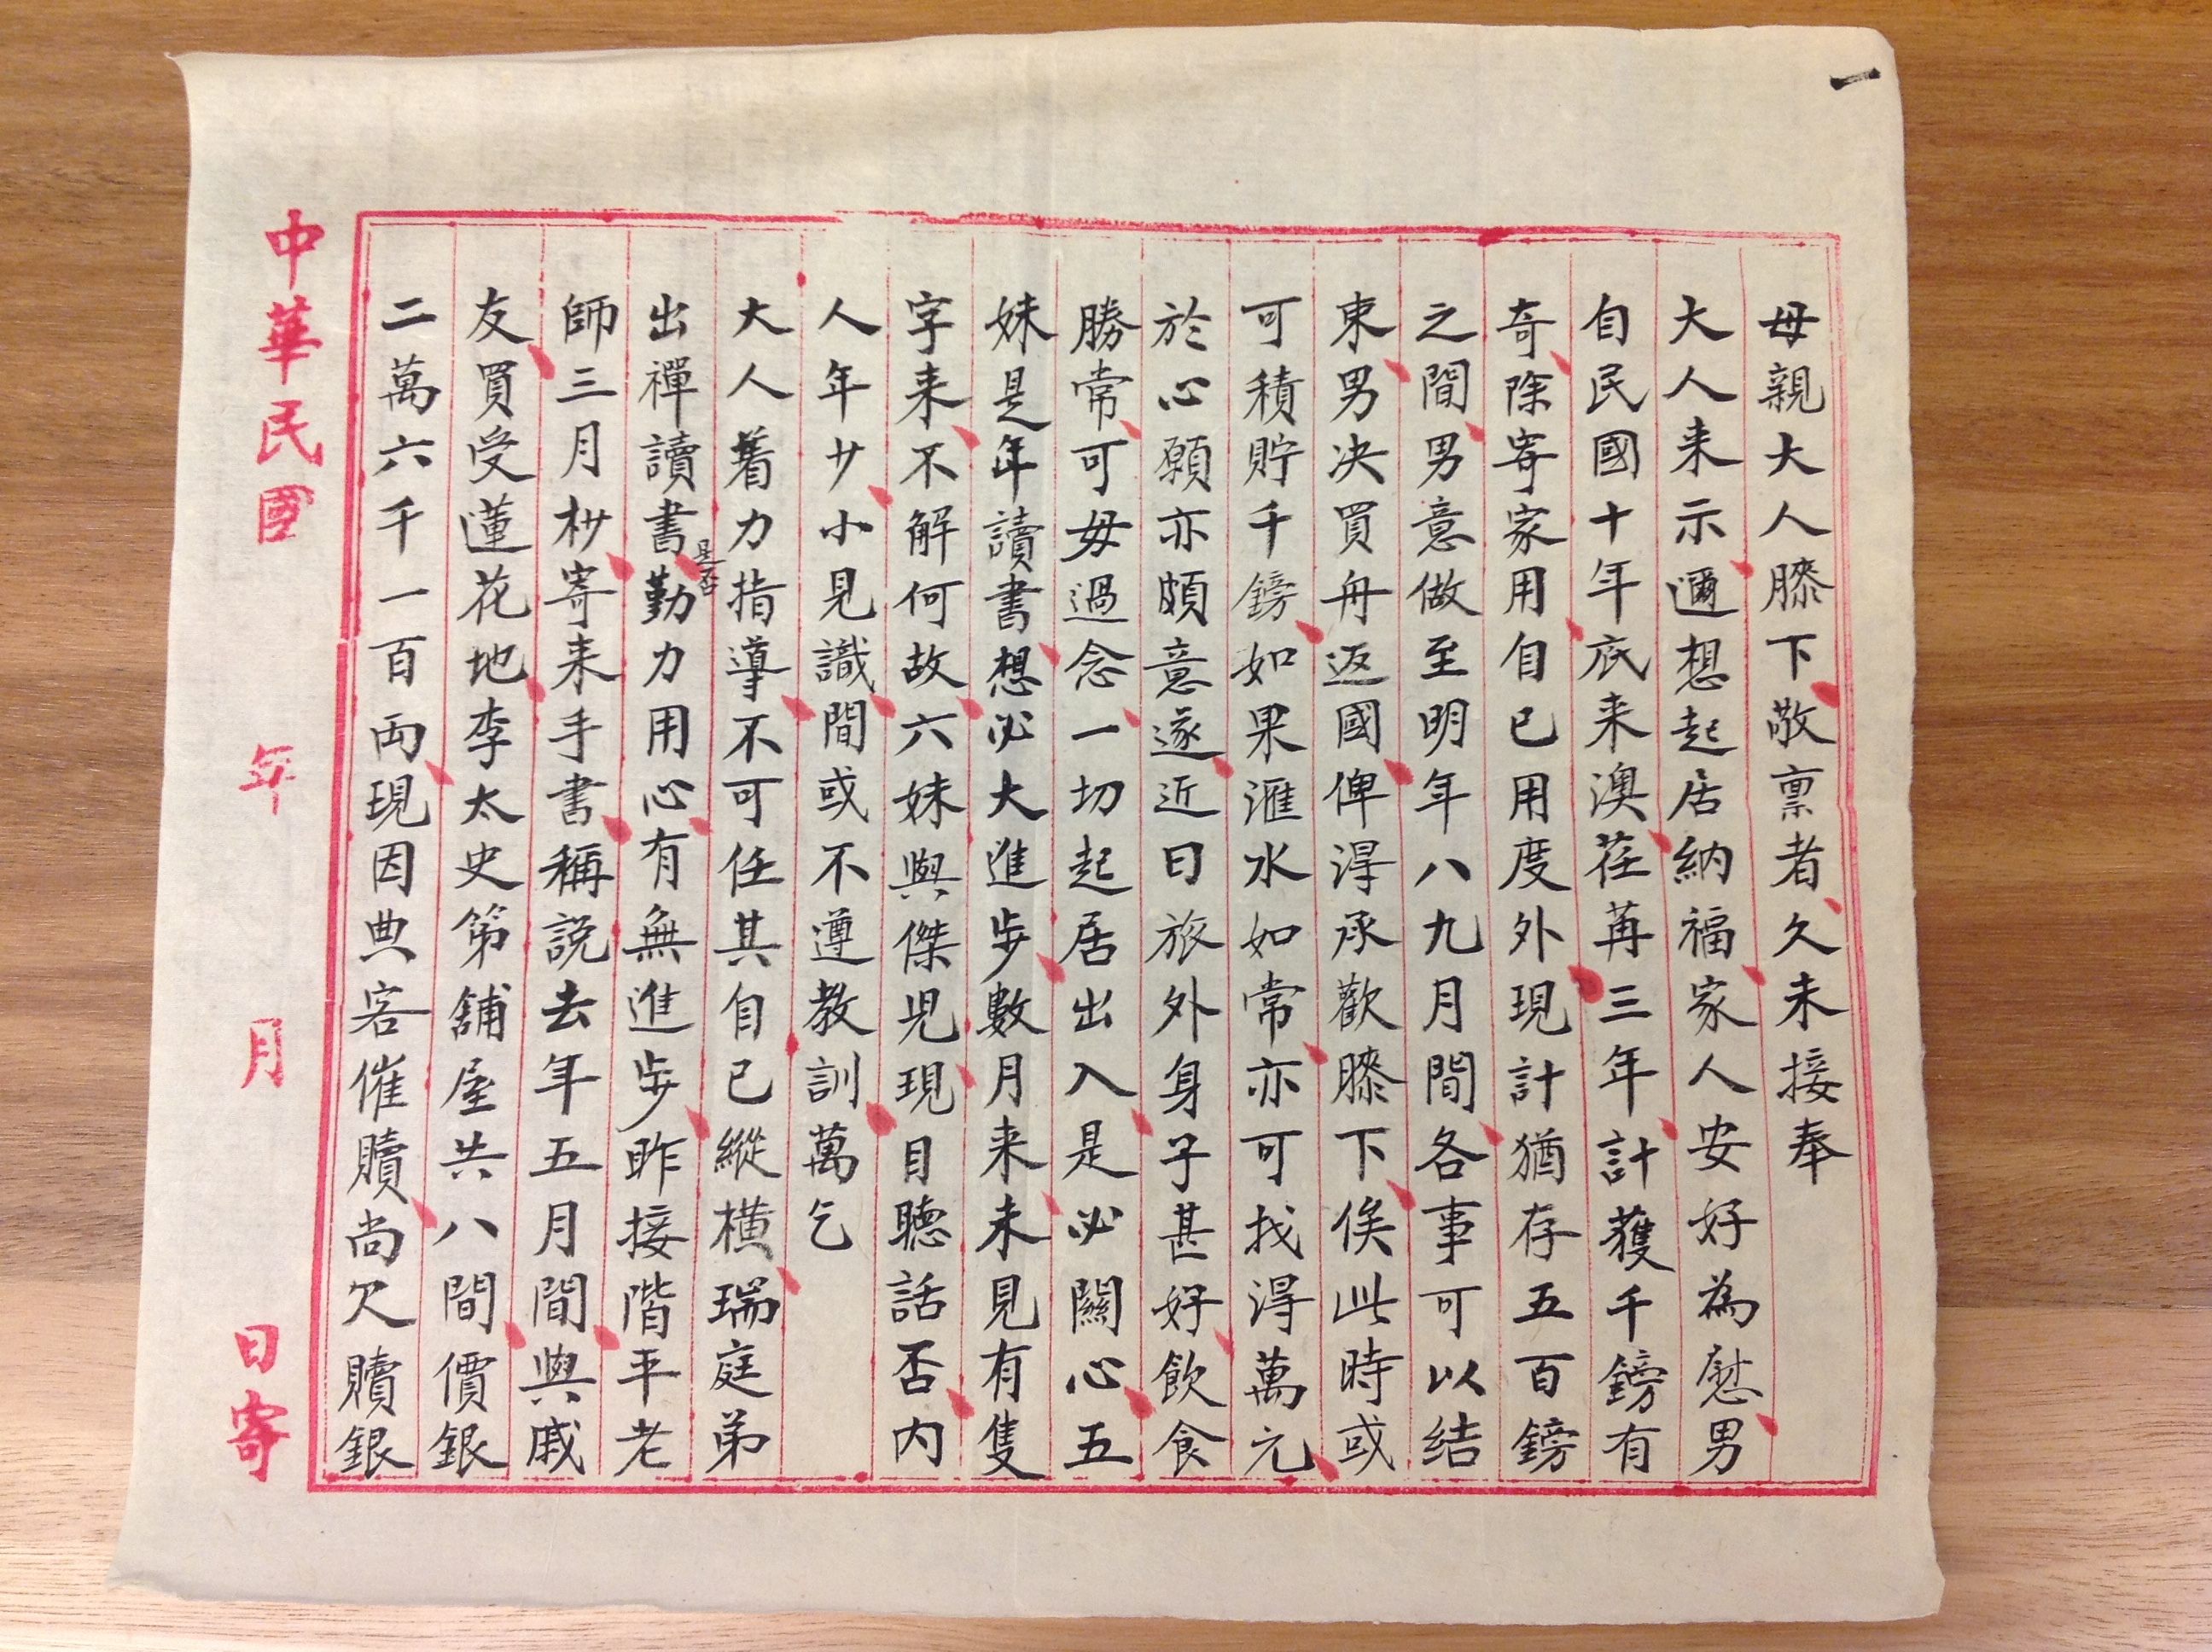 一
母親大人膝下敬禀者久未接奉
大人来示邇想起居納福家人安好為慰男
自民國十年底来澳荏苒三年計獲千鎊有
奇除寄家用自己用度外現計猶存五百鎊
之間男意做至明年八九月間各事可以結
束男决買舟返國俾得承歡膝下俟此時或
可積貯千鎊如果滙水如常亦可找得萬元
於心願亦頗意遂近日旅外身子甚好飲食
勝常可毋過念一切起居出入是必關心五
妹是年讀書想必大進步數月来未見有隻
字来不解何故六妹與傑児現目聽話否内
人年少小見識間或不遵教訓萬乞
大人着力指導不可任其自己縱橫瑞庭弟
出禪讀書是否勤力用心有無進步昨接階平老
師三月杪寄来手書稱説去年五月間與戚
友買受蓮花地李太史第舖屋共八間價銀
二萬六千一百両現因典客催贖尚欠贖銀
中華民國 年 月 日寄